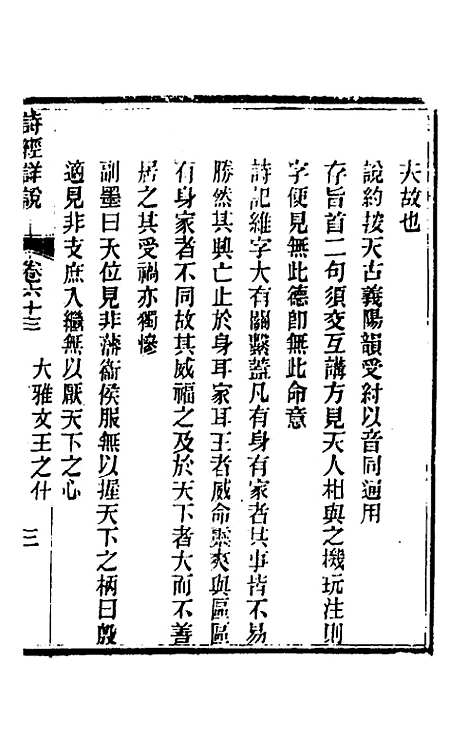 大故也
說約按天古義陽韻受紂以音同通用
存旨首二句須交互講方見天人相與之機玩注則
字便見無此德卽無此命意
詩記維字大有關繫蓋凡有身有家者其事皆不易
勝然其興亡止於身耳家耳王者威命棐爽與區區
有身家者不同故其威福之及於天下者大而不善
居之其受禍亦獨慘
副墨曰天位見非藩衞侯服無以握天下之柄曰殷
適見非支庶入繼無以厭天下之心
詩經詳說 卷六十三 大雅文王之什 三